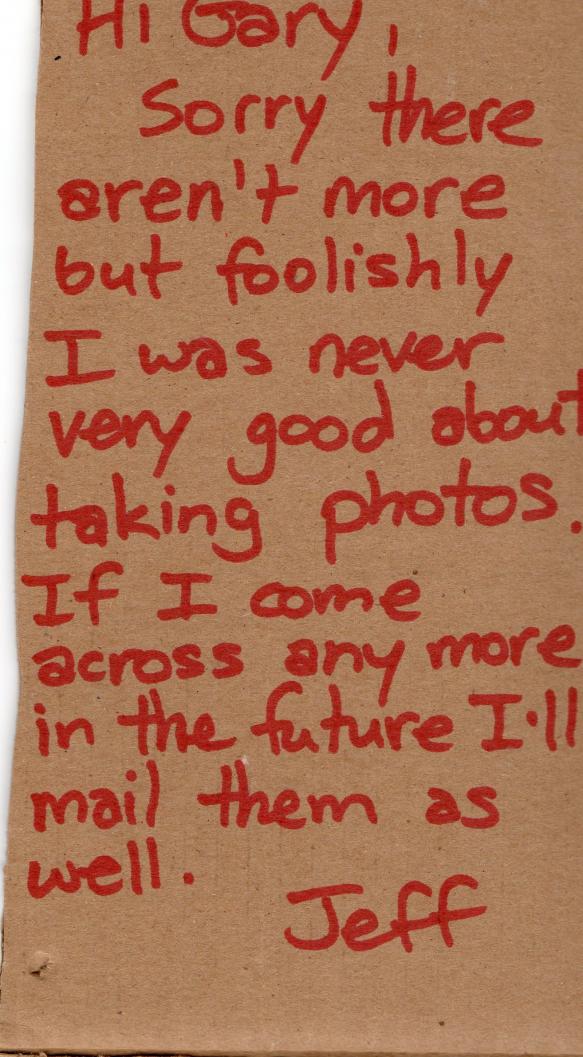 Hi Gary,
Sorry there
aren't more
but foolishly
I was never
very good about
taking photos.
If I come
across any more
in the future I'll
mail them as
well.
Jeff